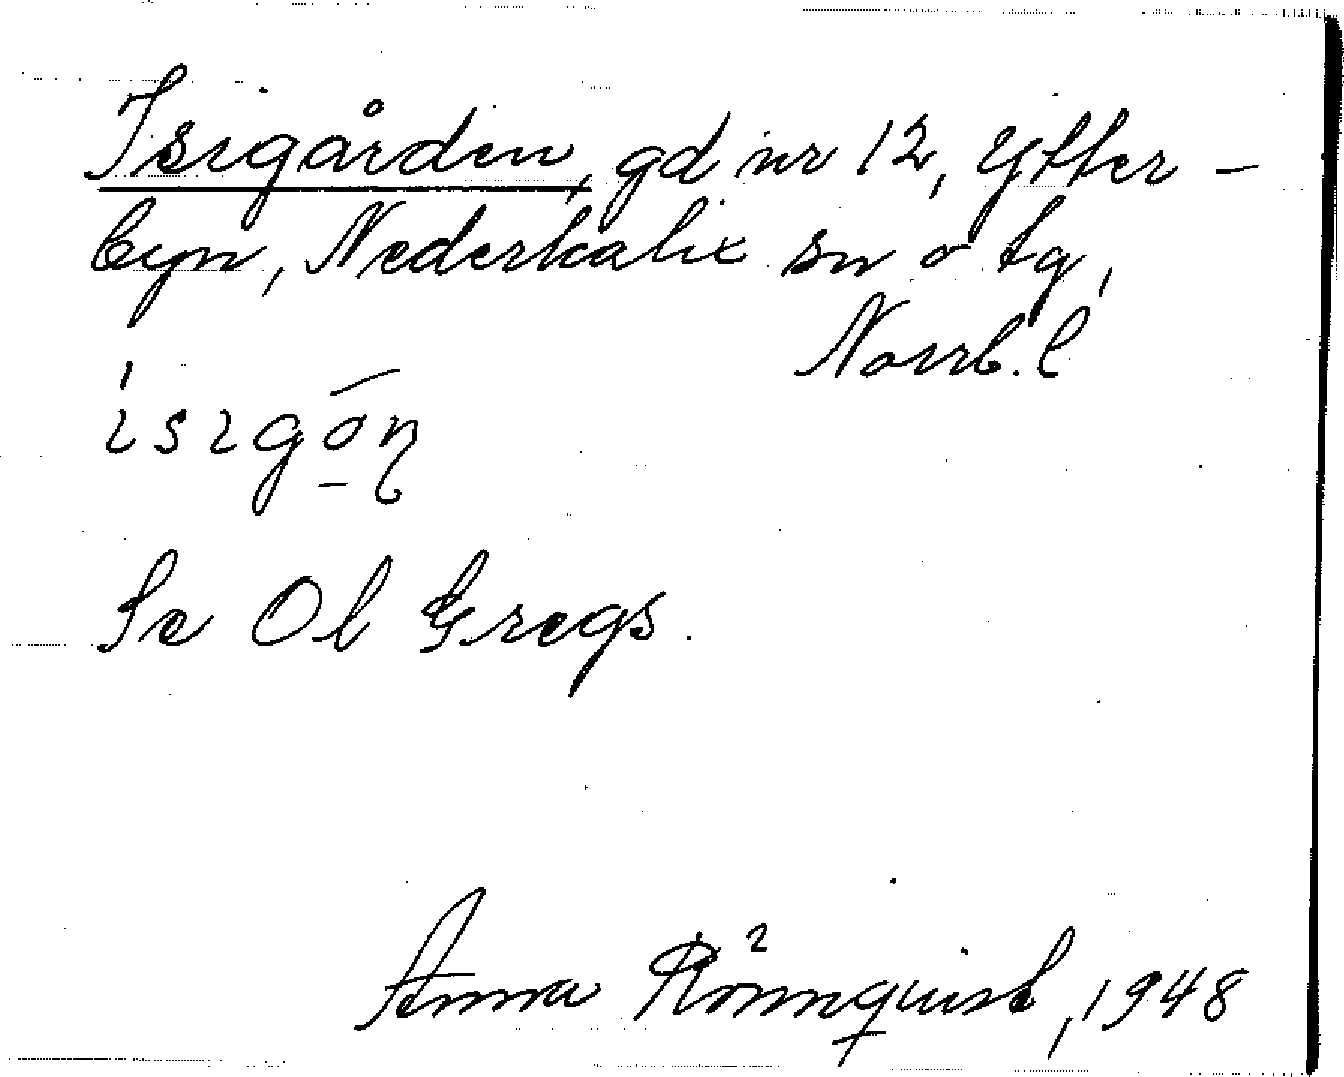 Isigården, gd nr 12, Ytter-
byn, Nederkalix sn o tg,
Norrb. l
ísigōn̥
Se Ol Gregs.
Anna Rönnquist, 1948